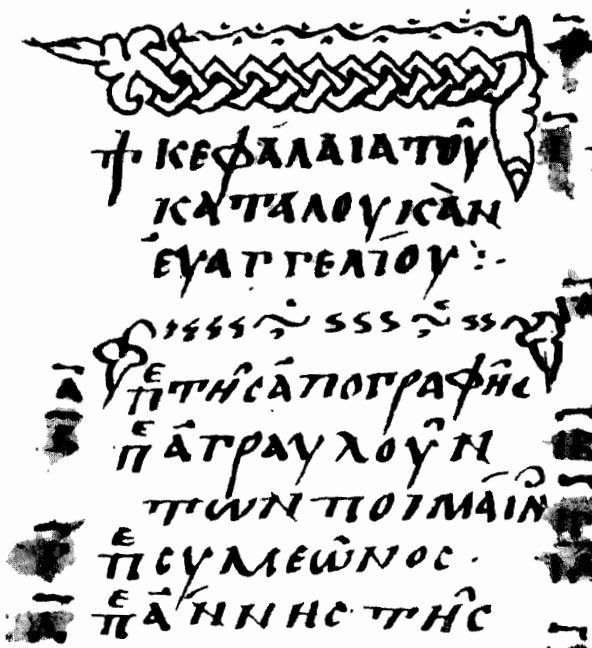 + ΚΕΦΆΛΑΙΑ ΤΟῦ
ΚΑΤΑ ΛΟΥΚᾺΝ
ἘΥΑΓΓΕΛΊΟΥ :-
Α̅ πε ΤΗ͂C ἈΠΟΓΡΑΦΗ͂C
Β̅ πε ἈΓΡΑΥΛΟΥ͂Ν
ΤΩΝ ΠΟΙΜΆΙΝ
πε CΥΜΕῶΝΟC ·
πε ἌΝΝΗC ΤΗ͂C